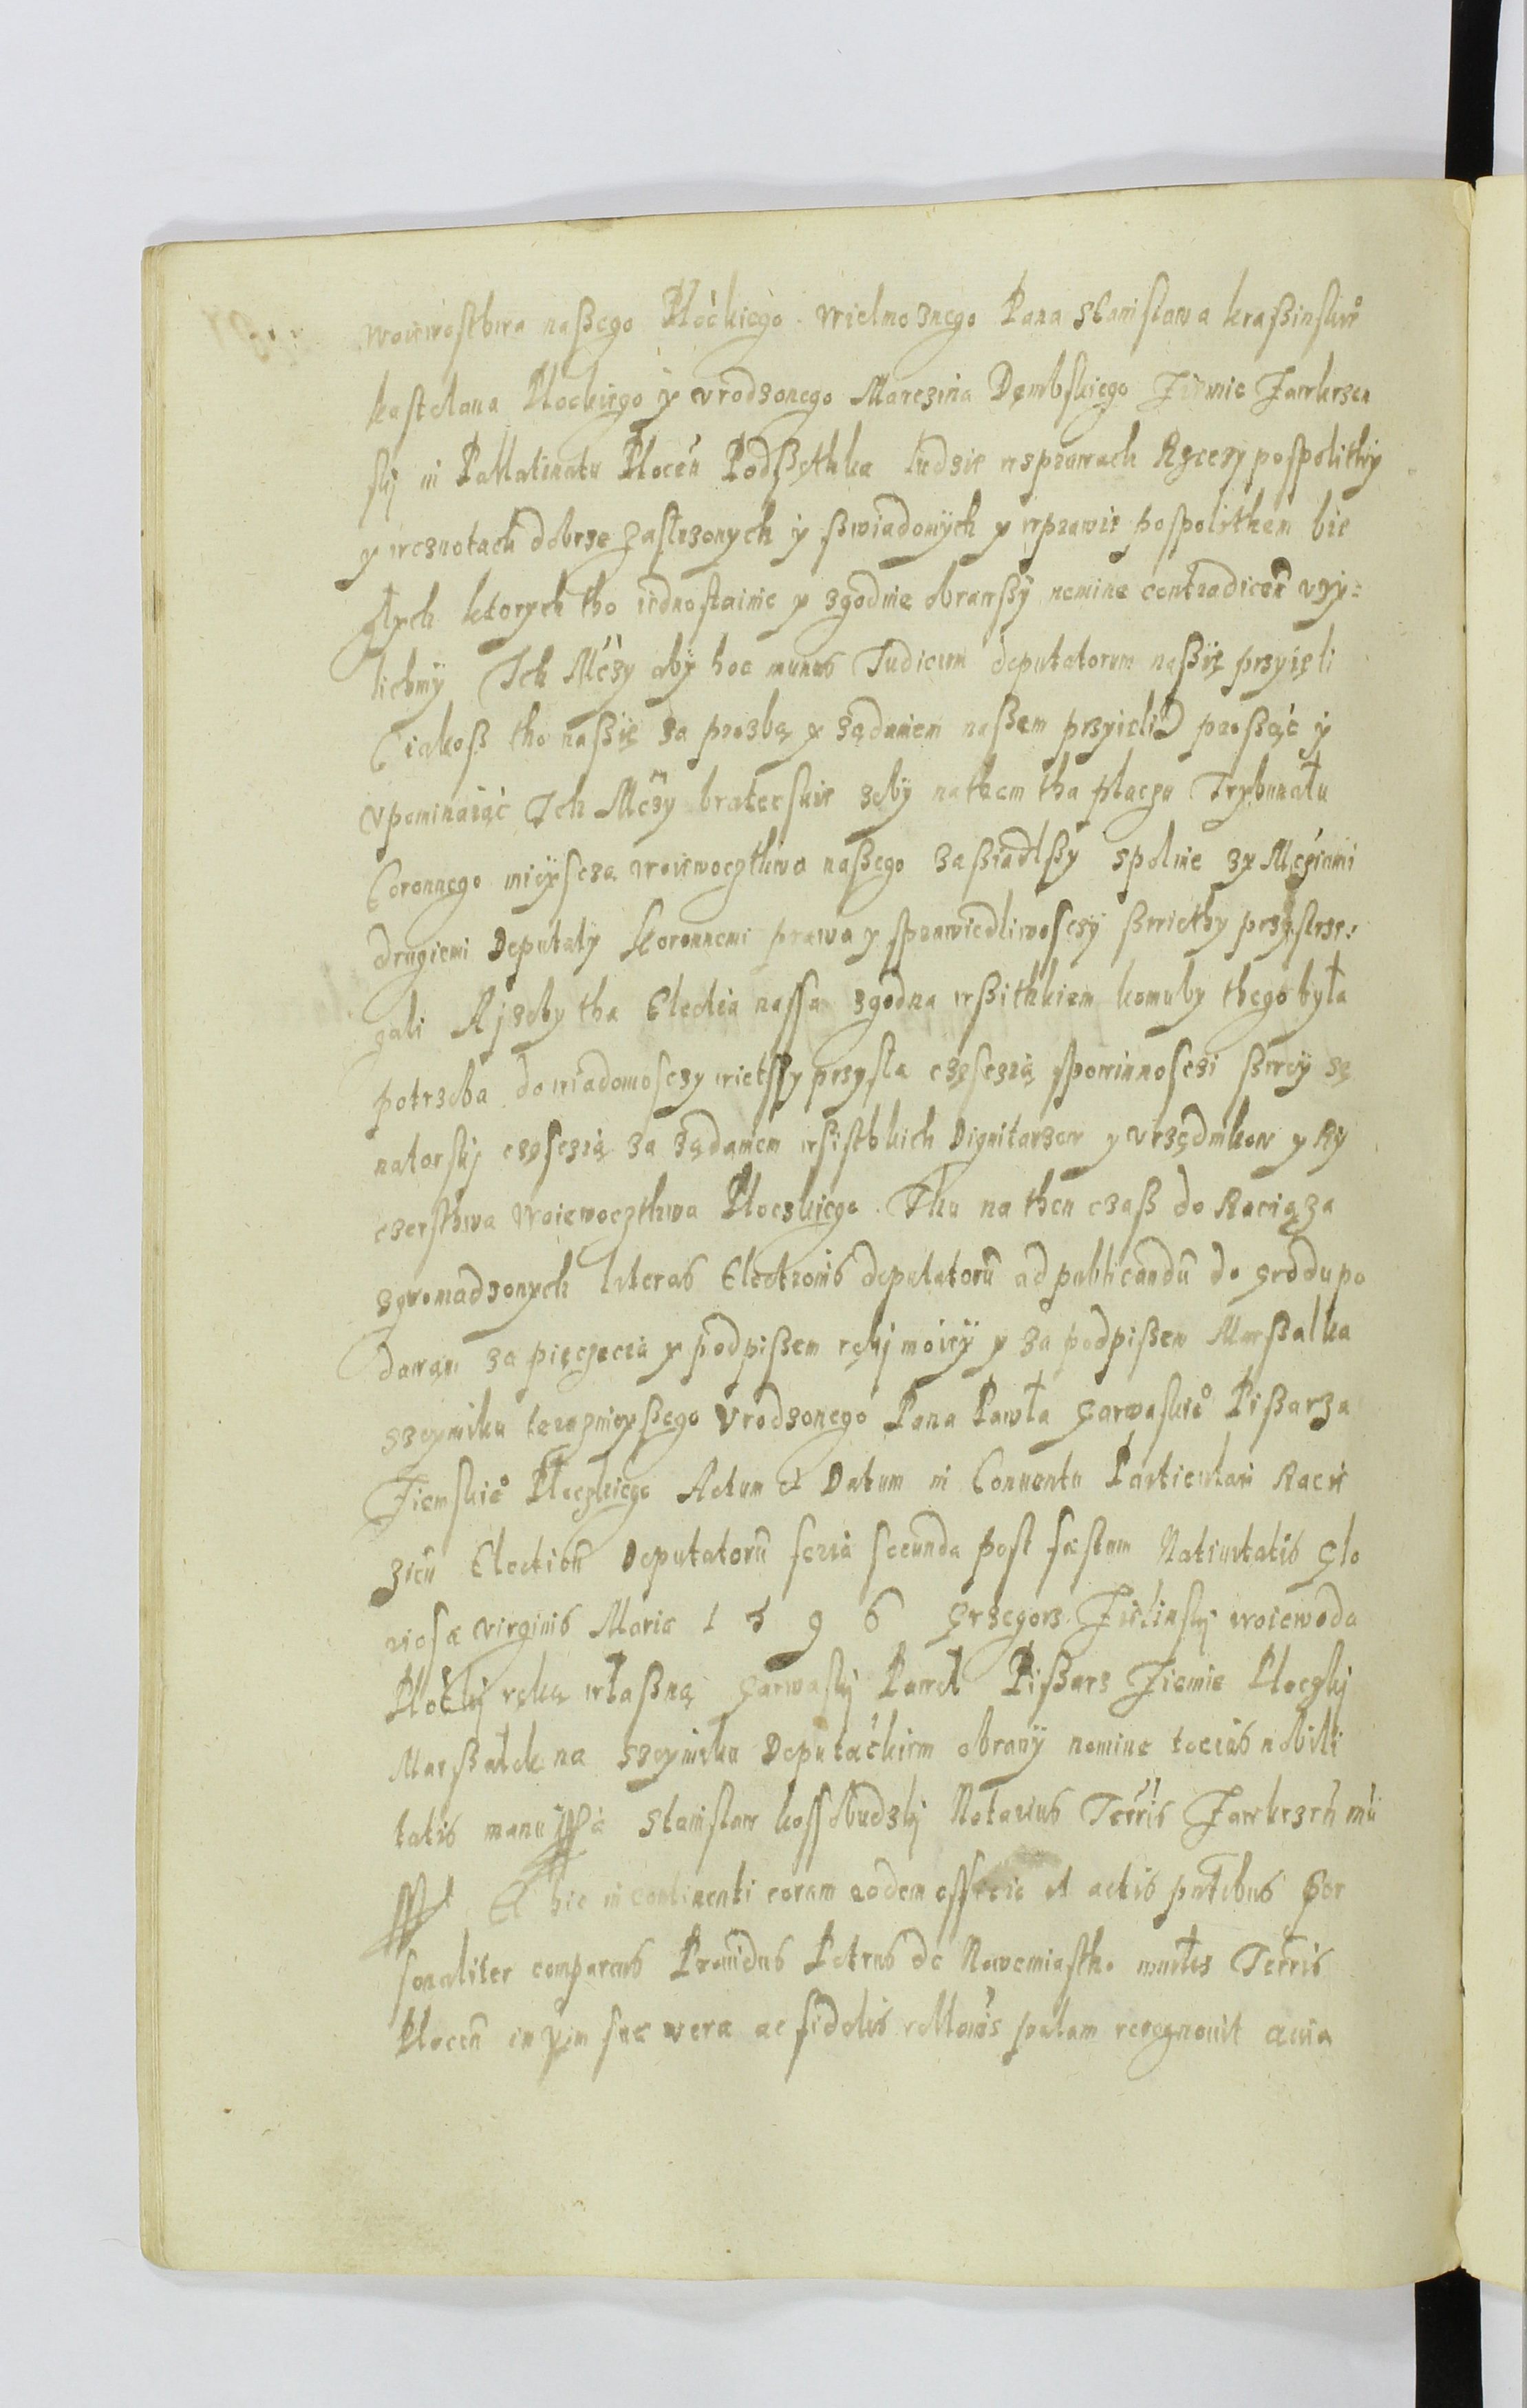 woiewosthwa naßego Płockiego. Wielmoznego Pana Stanisława kraßinskieo
kastelana Płockiego y vrodzonego Marczina Dęmbskiego Ziemie Zawkrzen
skj in Pallatinatu Płocen Podsęthka ludzie wsprawach Rzeczy pospolithy
y wcznotach dobrze zasłuzonych y swiadomÿch y wprawie pospolithem bie
głych ktorych tho iednostainie y zgodnie obrawßÿ nemine contradicen vzÿ=
lichmÿ Ich Mczy abÿ hoc munus Judicum deputatorum naßię przyięli
(iakoß tho naßię za prozbą y ządaniem naßem przyieli) proßąc ÿ
vpominaiąc Ich Mczy bratersskie zebÿ na them tha placzu Trybunału
Coronnego mieyscza woiewocztkwa naßego zaßiadłßy spolnie zy Mczinmi
drugiemi Deputaty koronnemi prawa y sprawiedliwosczÿ ßwiethy przestrze:
gali Aj zeby tha Electia nassa zgodna wßithkiem komuby thego była
potrzeba do wiadomosczy wietsßy przysła częsczią spowinnosczi ßweÿ se
natorskj częsczią za ządaniem wsisthkich Dignitarzow y vrzędnikow y Rÿ
czersthwa Woiewocztkwa Płoczkiego. Thu na then czaß do Raciąza
zgromadzonych literas Electionis deputatorū ad publicandū do grodu po
dawam za pięczecią y podpißem rękj moieÿ y za podpißem Marßalka
szeymiku teraznieyßego Vrodzonego Pana Pawła Garwaskieo Pißarza
Ziemskieo Płoczkiego Actum et Datum in Conuentu Particulari Raciē
zien Electiōn Deputatorū feria secunda post festum Natiuitatis Glo
riosæ virginis Mariæ 1 5 9 6 Grzegorz Zielinskj woiewoda
Płockj ręką własną Garwaskj Paweł Pißarz Ziemie Płoczkj
Marßałek na szeymiku Deputackiem obranÿ nomine tocius nobili
tatis manu ppa Stanisław kossobudzkj Notarius Terris Zawkrzen mū
ppa. Et hic in continenti coram eodem officio et actis pntibus Per
sonaliter comparens Prouidus Petrus de Nowemiastho mnites Terris
Płocen in vim suæ veræ ac fidelis rellonis palam recognouit quia